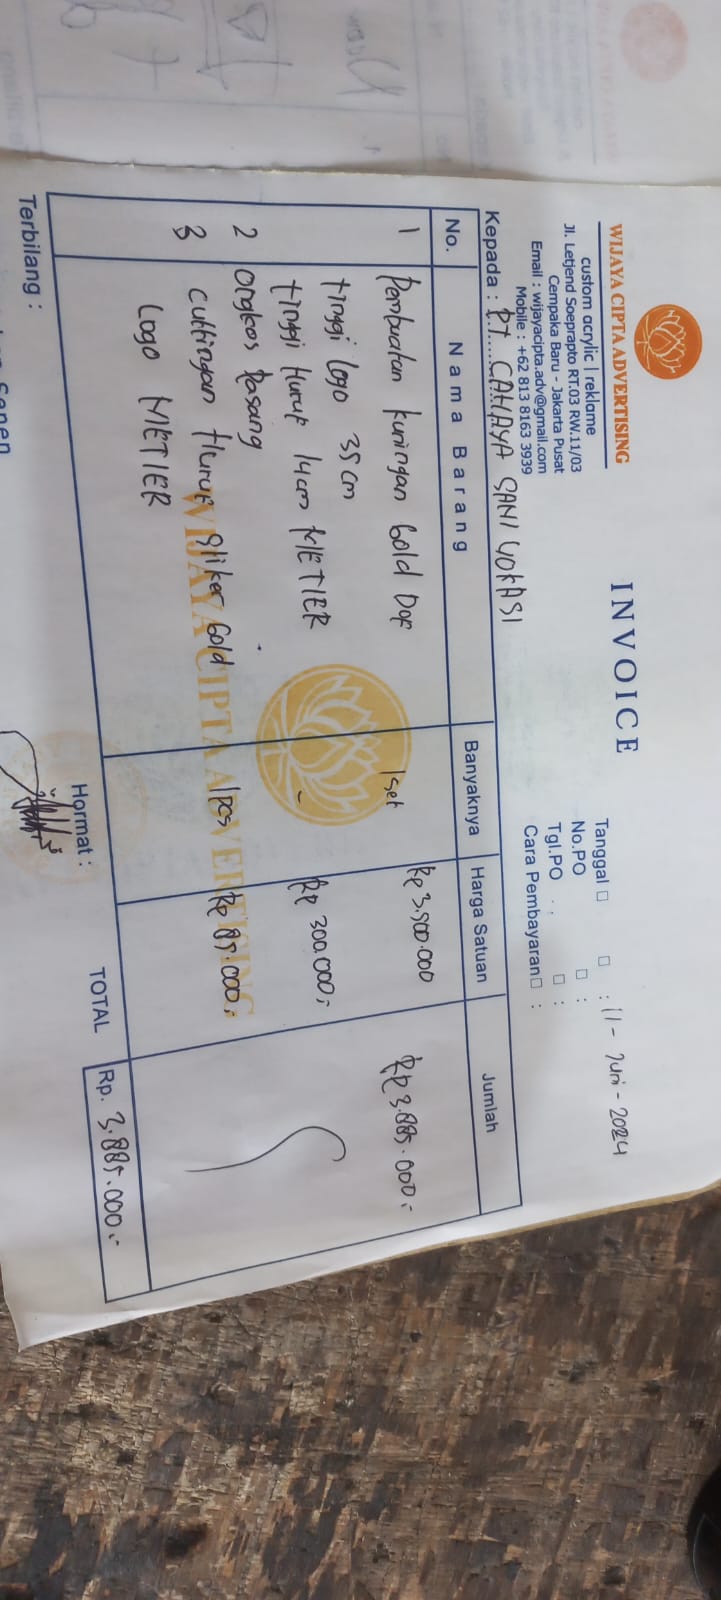 WIJAYA CIPTA ADVERTISING
custom acrylic | reklame
Jl. Letjend Soeprapto RT.03 RW.11/03
Cempaka Baru - Jakarta Pusat
Email : wijayacipta.adv@gmail.com
Mobile : +62 813 8163 3939
INVOICE
Tanggal : 11 - Juni - 2024
No.PO :
Tgl.PO :
Cara Pembayaran :
Kepada : PT. CAHAYA SANI VOKASI
No. Nama Barang Banyaknya Harga Satuan Jumlah
1 Pembuatan Kuningan Gold Dof 1 set Rp 3.500.000 Rp 3.885.000,-
tinggi Logo 35 cm
tinggi Huruf 14cm METIER
2 Ongkos Pasang - Rp 300.000,-
3 Cuttingan Huruf Stiker Gold 1 pcs Rp 85.000,-
Logo METIER
WIJAYA CIPTA ADVERTISING
TOTAL Rp. 3.885.000,-
Hormat :
Terbilang :
Senen